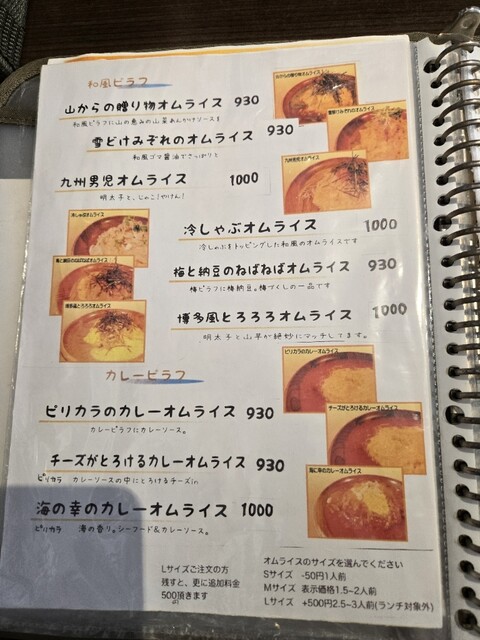 和風ピラフ
山からの贈り物オムライス 930
和風ピラフに山の恵みの山菜あんかけソースを
雪どけみぞれのオムライス 930
和風ゴマ醤油でさっぱりと
九州男児オムライス 1000
明太子と、じゃこ!やけん!
冷しゃぶオムライス 1000
冷しゃぶをトッピングした和風のオムライスです
梅と納豆のねばねばオムライス 930
梅ピラフに梅納豆。梅づくしの一品です
博多風とろろろオムライス 1000
明太子と山芋が絶妙にマッチしてます。
山からの贈り物オムライス
雪どけみぞれのオムライス
九州男児オムライス
冷しゃぶオムライス
梅と納豆のねばねばオムライス
博多風とろろろオムライス
カレーピラフ
ピリカラのカレーオムライス 930
カレーピラフにカレーソース。
チーズがとろけるカレーオムライス 930
ピリカラ カレーソースの中にとろけるチーズin
海の幸のカレーオムライス 1000
ピリカラ 海の香り。シーフード&カレーソース。
ピリカラのカレーオムライス
チーズがとろけるカレーオムライス
海に幸のカレーオムライス
Lサイズご注文の方
残すと、更に追加料金
500頂きます
オムライスのサイズを選んでください
Sサイズ -50円1人前
Mサイズ 表示価格1.5~2人前
Lサイズ +500円2.5~3人前(ランチ対象外)